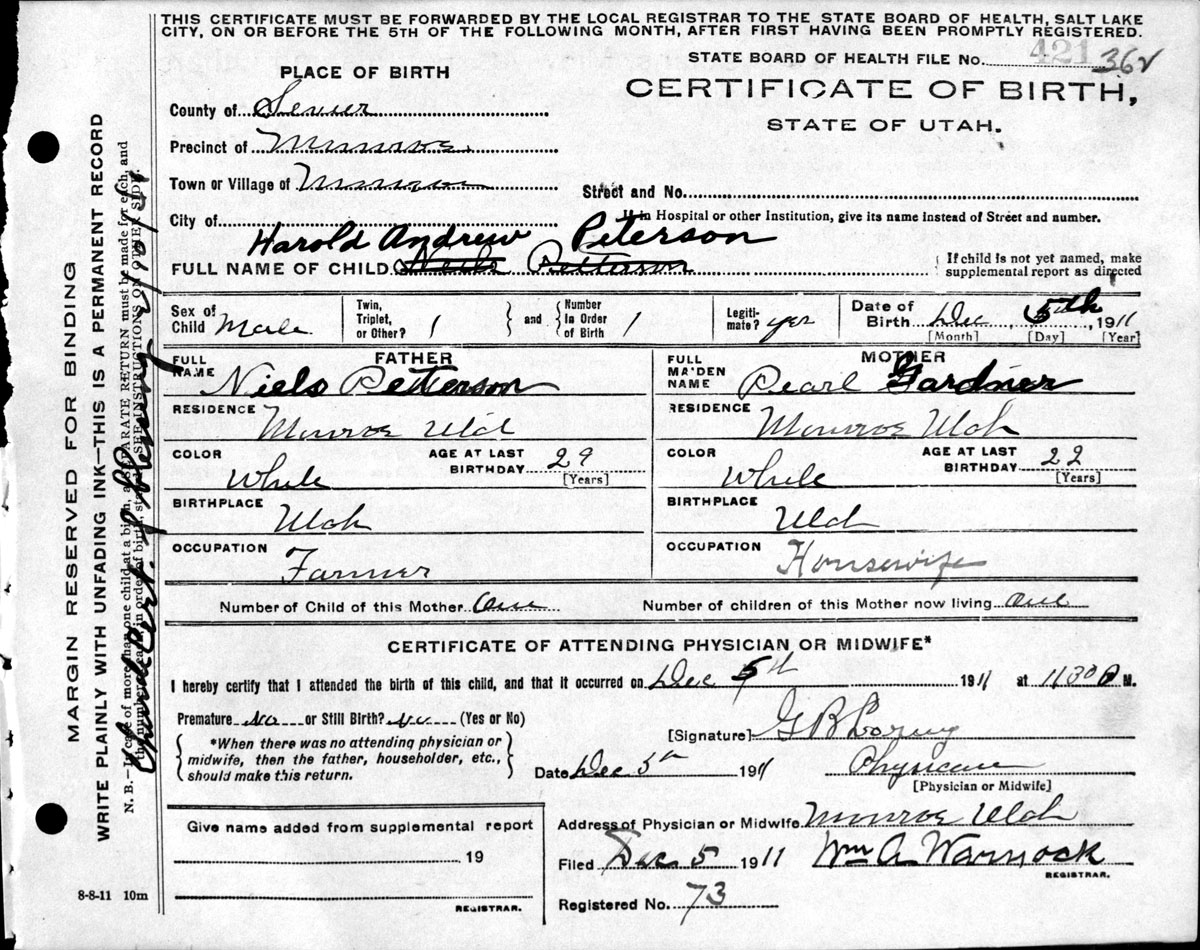 THIS CERTIFICATE MUST BE FORWARDED BY THE LOCAL REGISTRAR TO THE STATE BOARD OF HEALTH, SALT LAKE
CITY, ON OR BEFORE THE 5TH OF THE FOLLOWING MONTH, AFTER FIRST HAVING BEEN PROMPTLY REGISTERED.
STATE BOARD OF HEALTH FILE No. 421 362
PLACE OF BIRTH
CERTIFICATE OF BIRTH,
STATE OF UTAH.
County of Sevier
Precinct of Monroe
Town or Village of Monroe
Street and No.
City of
If in Hospital or other Institution, give its name instead of Street and number.
Harold Andrew Peterson
FULL NAME OF CHILD Neils Petterson
If child is not yet named, make
supplemental report as directed
Sex of Child Male
Twin, Triplet, or Other? 1
and Number in Order of Birth 1
Legiti-mate? yes
Date of Birth Dec 5th, 1911
[Month] [Day] [Year]
FATHER
FULL NAME Niels Petterson
RESIDENCE Monroe Utah
COLOR White
AGE AT LAST BIRTHDAY 29
[Years]
BIRTHPLACE Utah
OCCUPATION Farmer
MOTHER
FULL MAIDEN NAME Pearl Gardner
RESIDENCE Monroe Utah
COLOR White
AGE AT LAST BIRTHDAY 22
[Years]
BIRTHPLACE Utah
OCCUPATION Housewife
Number of Child of this Mother One
Number of children of this Mother now living One
CERTIFICATE OF ATTENDING PHYSICIAN OR MIDWIFE*
I hereby certify that I attended the birth of this child, and that it occurred on Dec 5th 1911 at 1130 P M.
Premature no or Still Birth? no (Yes or No)
*When there was no attending physician or
midwife, then the father, householder, etc.,
should make this return.
[Signature] G B
Date Dec 5th 1911
Physician
[Physician or Midwife]
Give name added from supplemental report
19
REGISTRAR.
Address of Physician or Midwife Monroe Utah
Filed Dec 5 1911 Wm A Warnock
REGISTRAR.
Registered No. 73
8-8-11 10m
MARGIN RESERVED FOR BINDING
WRITE PLAINLY WITH UNFADING INK—THIS IS A PERMANENT RECORD
N. B.—In case of more than one child at a birth, a SEPARATE RETURN must be made for each, and
the number of each, in order of birth, stated. SEE INSTRUCTIONS ON OTHER SIDE.